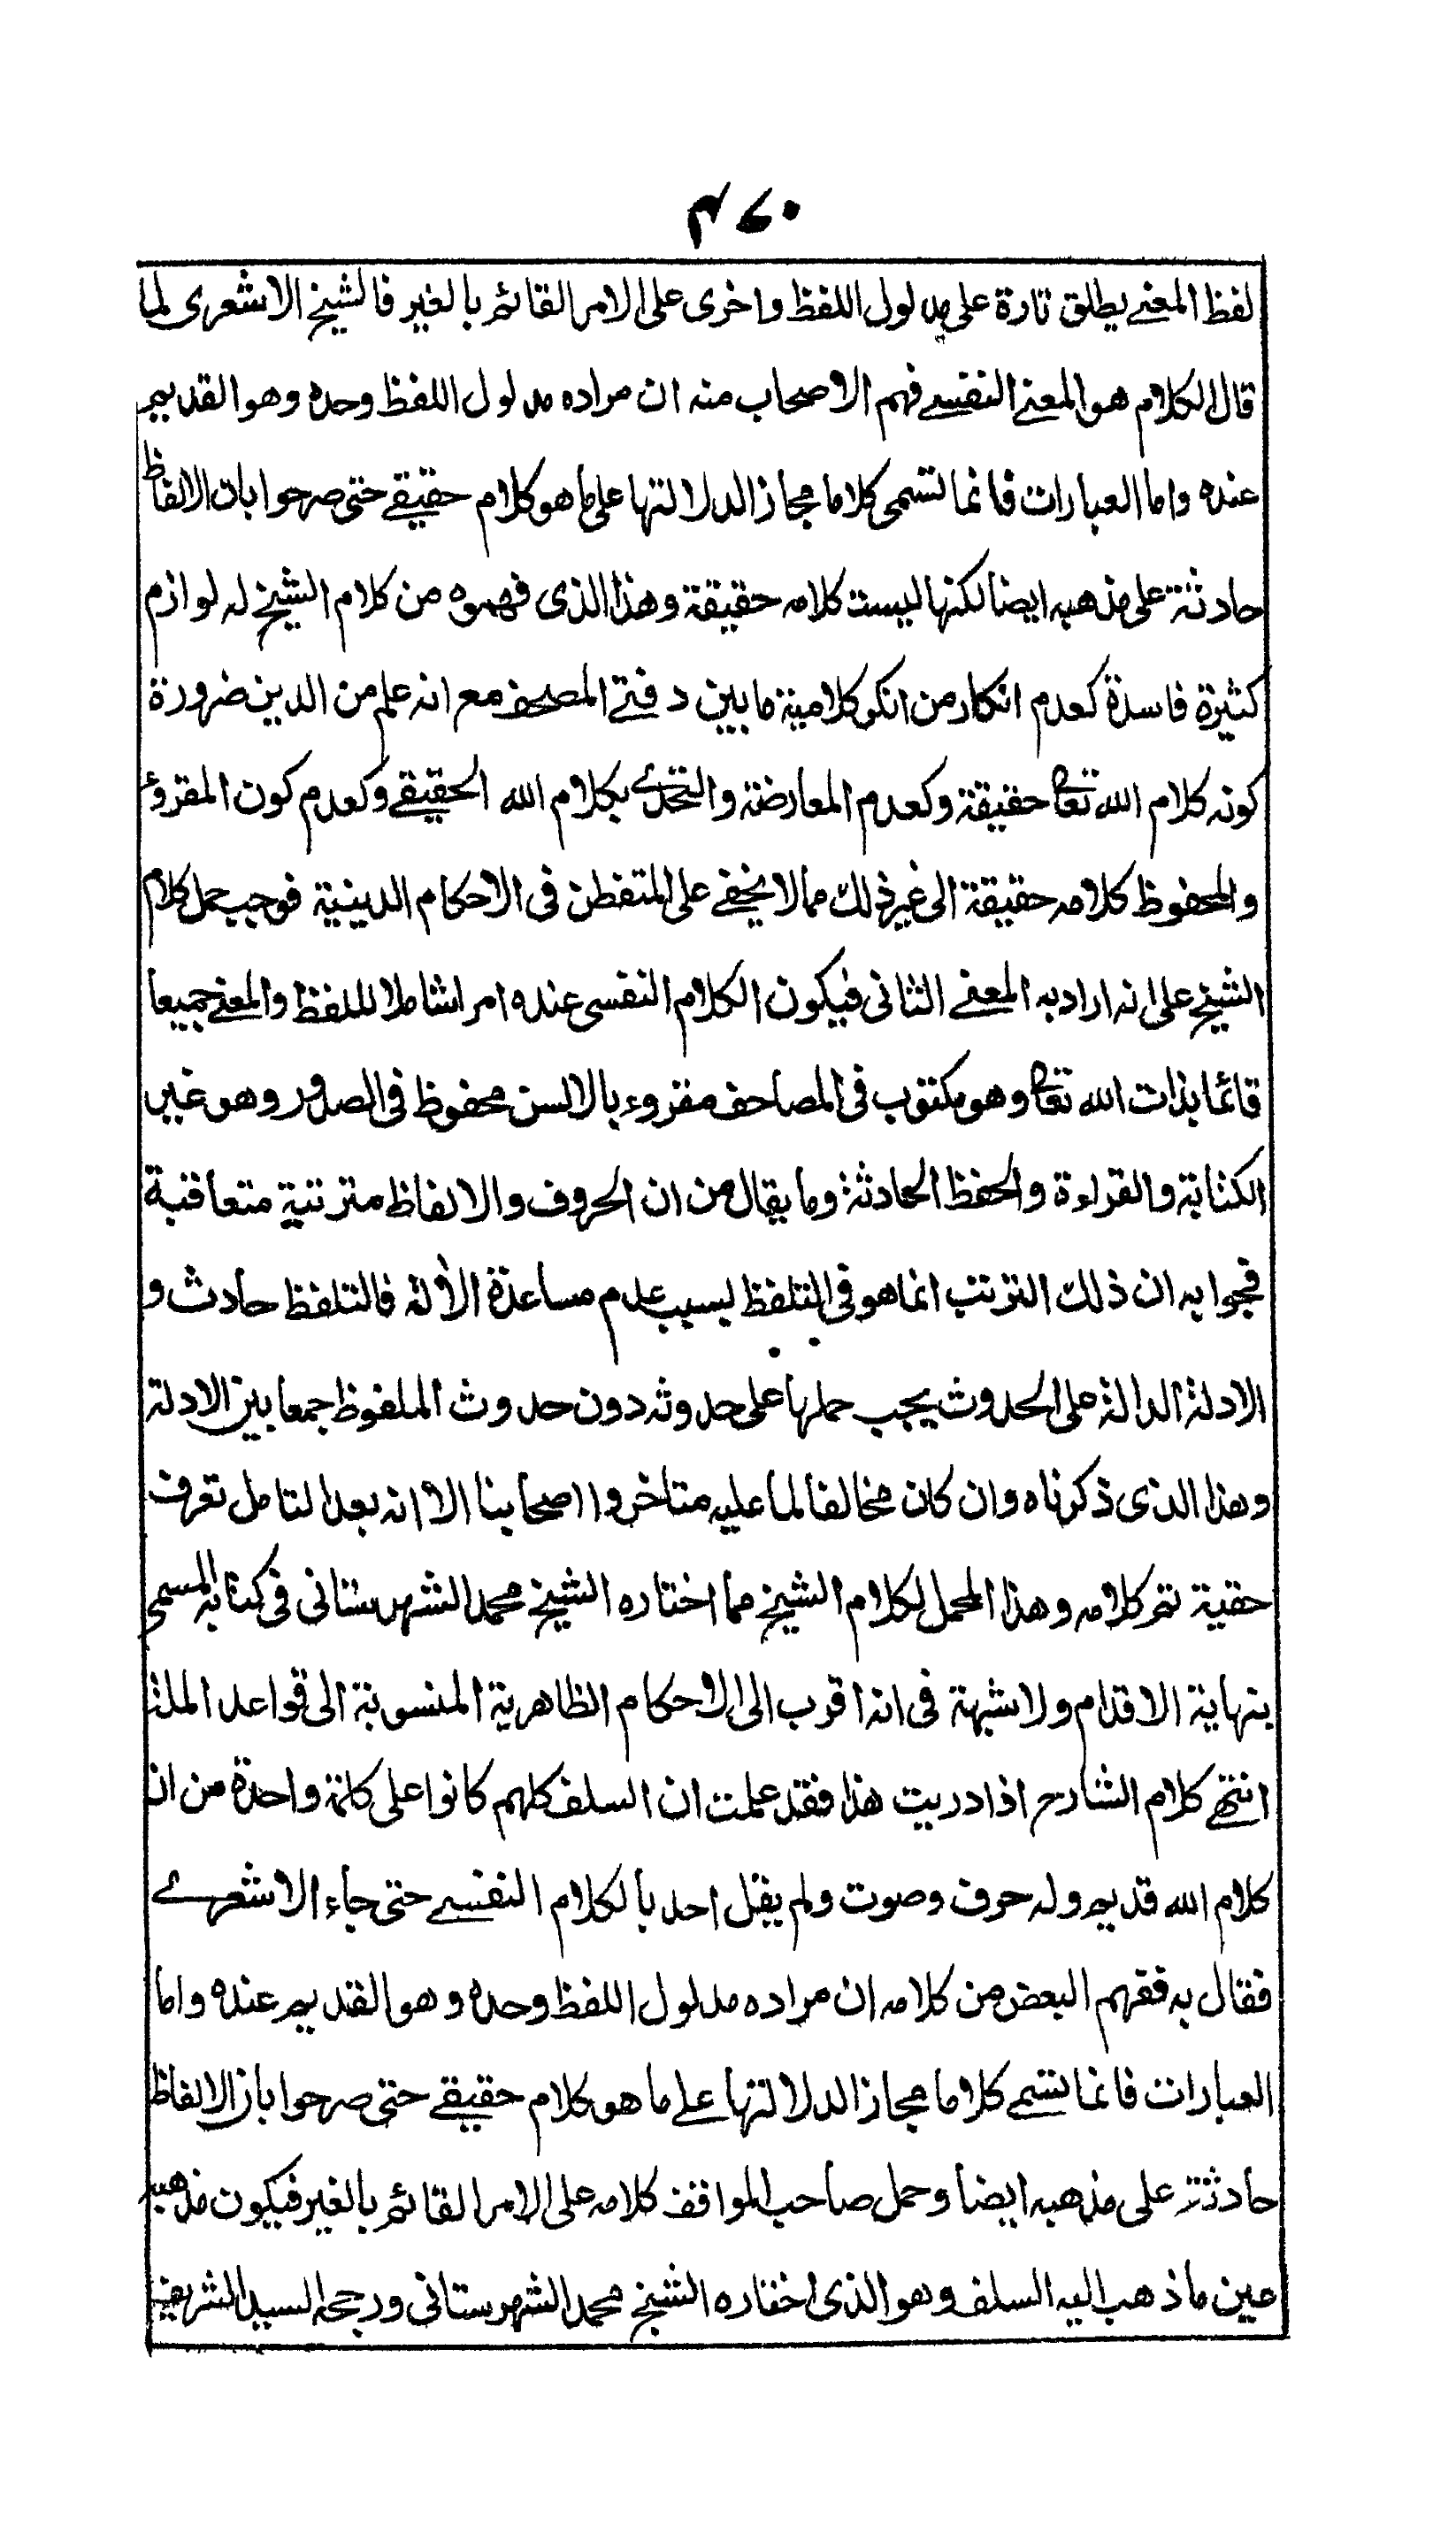 ٤٧٠
لفظ المعنے يطلق تارة على مدلول اللفظ واخرى على الامر القائم بالغير فالشيخ الاشعرى لما
قال الكلام هو المعنے النفسے فهم الاصحاب منه ان مراده مدلول اللفظ وحده وهو القديم
عنده واما العبارات فانما تسمى كلاما مجازا لدلالتها على ما هو كلام حقيقے حتى صرحوا بان الالفاظ
حادثة على مذهبه ايضا لكنها ليست كلامه حقيقة وهذا الذى فهموه من كلام الشيخ له لوازم
كثيرة فاسدة كعدم انكار من انكر كلامية ما بين دفتے المصحف مع انه علم من الدين ضرورة
كونه كلام الله تعالى حقيقة وكعدم المعارضة والتحدے بكلام الله الحقيقے وكعدم كون المقروء
والمحفوظ كلامه حقيقة الى غير ذلك مما لا يخفے على المتفطن فى الاحكام الدينية فوجب حمل كلام
الشيخ على انه اراد به المعنے الثانى فيكون الكلام النفسى عنده امرا شاملا للفظ والمعنے جميعا
قائما بذات الله تعالى وهو مكتوب فى المصاحف مقروء بالالسن محفوظ فى الصدور وهو غير
الكتابة والقراءة والحفظ الحادثة وما يقال من ان الحروف والالفاظ مترتبة متعاقبة
فجوابه ان ذلك الترتب انما هو فى التلفظ بسبب عدم مساعدة الألة فالتلفظ حادث و
الادلة الدالة على الحدوث يجب حملها على حدوثه دون حدوث الملفوظ جمعا بين الادلة
وهذا الذى ذكرناه وان كان مخالفا لما عليه متاخروا اصحابنا الا انه بعد التامل تعرف
حقيته تم كلامه وهذا المحمل لكلام الشيخ مما اختاره الشيخ محمد الشهرستانى فى كتابه المسمى
بنهاية الاقدام ولا شبهة فى انه اقرب الى الاحكام الظاهرية المنسوبة الى قواعد الملة
انتهى كلام الشارح اذا دريت هذا فقد علمت ان السلف كلهم كانوا على كلمة واحدة من ان
كلام الله قديم وله حرف وصوت ولم يقل احد بالكلام النفسے حتى جاء الاشعرے
فقال به ففهم البعض من كلامه ان مراده مدلول اللفظ وحده وهو القديم عنده واما
العبارات فانما تسمے كلاما مجازا لدلالتها علے ما هو كلام حقيقے حتى صرحوا بان الالفاظ
حادثة على مذهبه ايضا وحمل صاحب المواقف كلامه على الامر القائم بالغير فيكون مذهبه
عين ما ذهب اليه السلف وهو الذى اختاره الشيخ محمد الشهرستانى ورجحه السيد الشريف